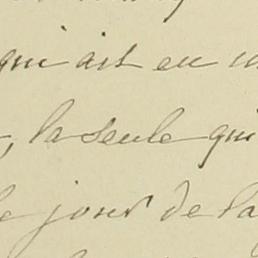 qui ait eu
, la seule qui
le jour de la